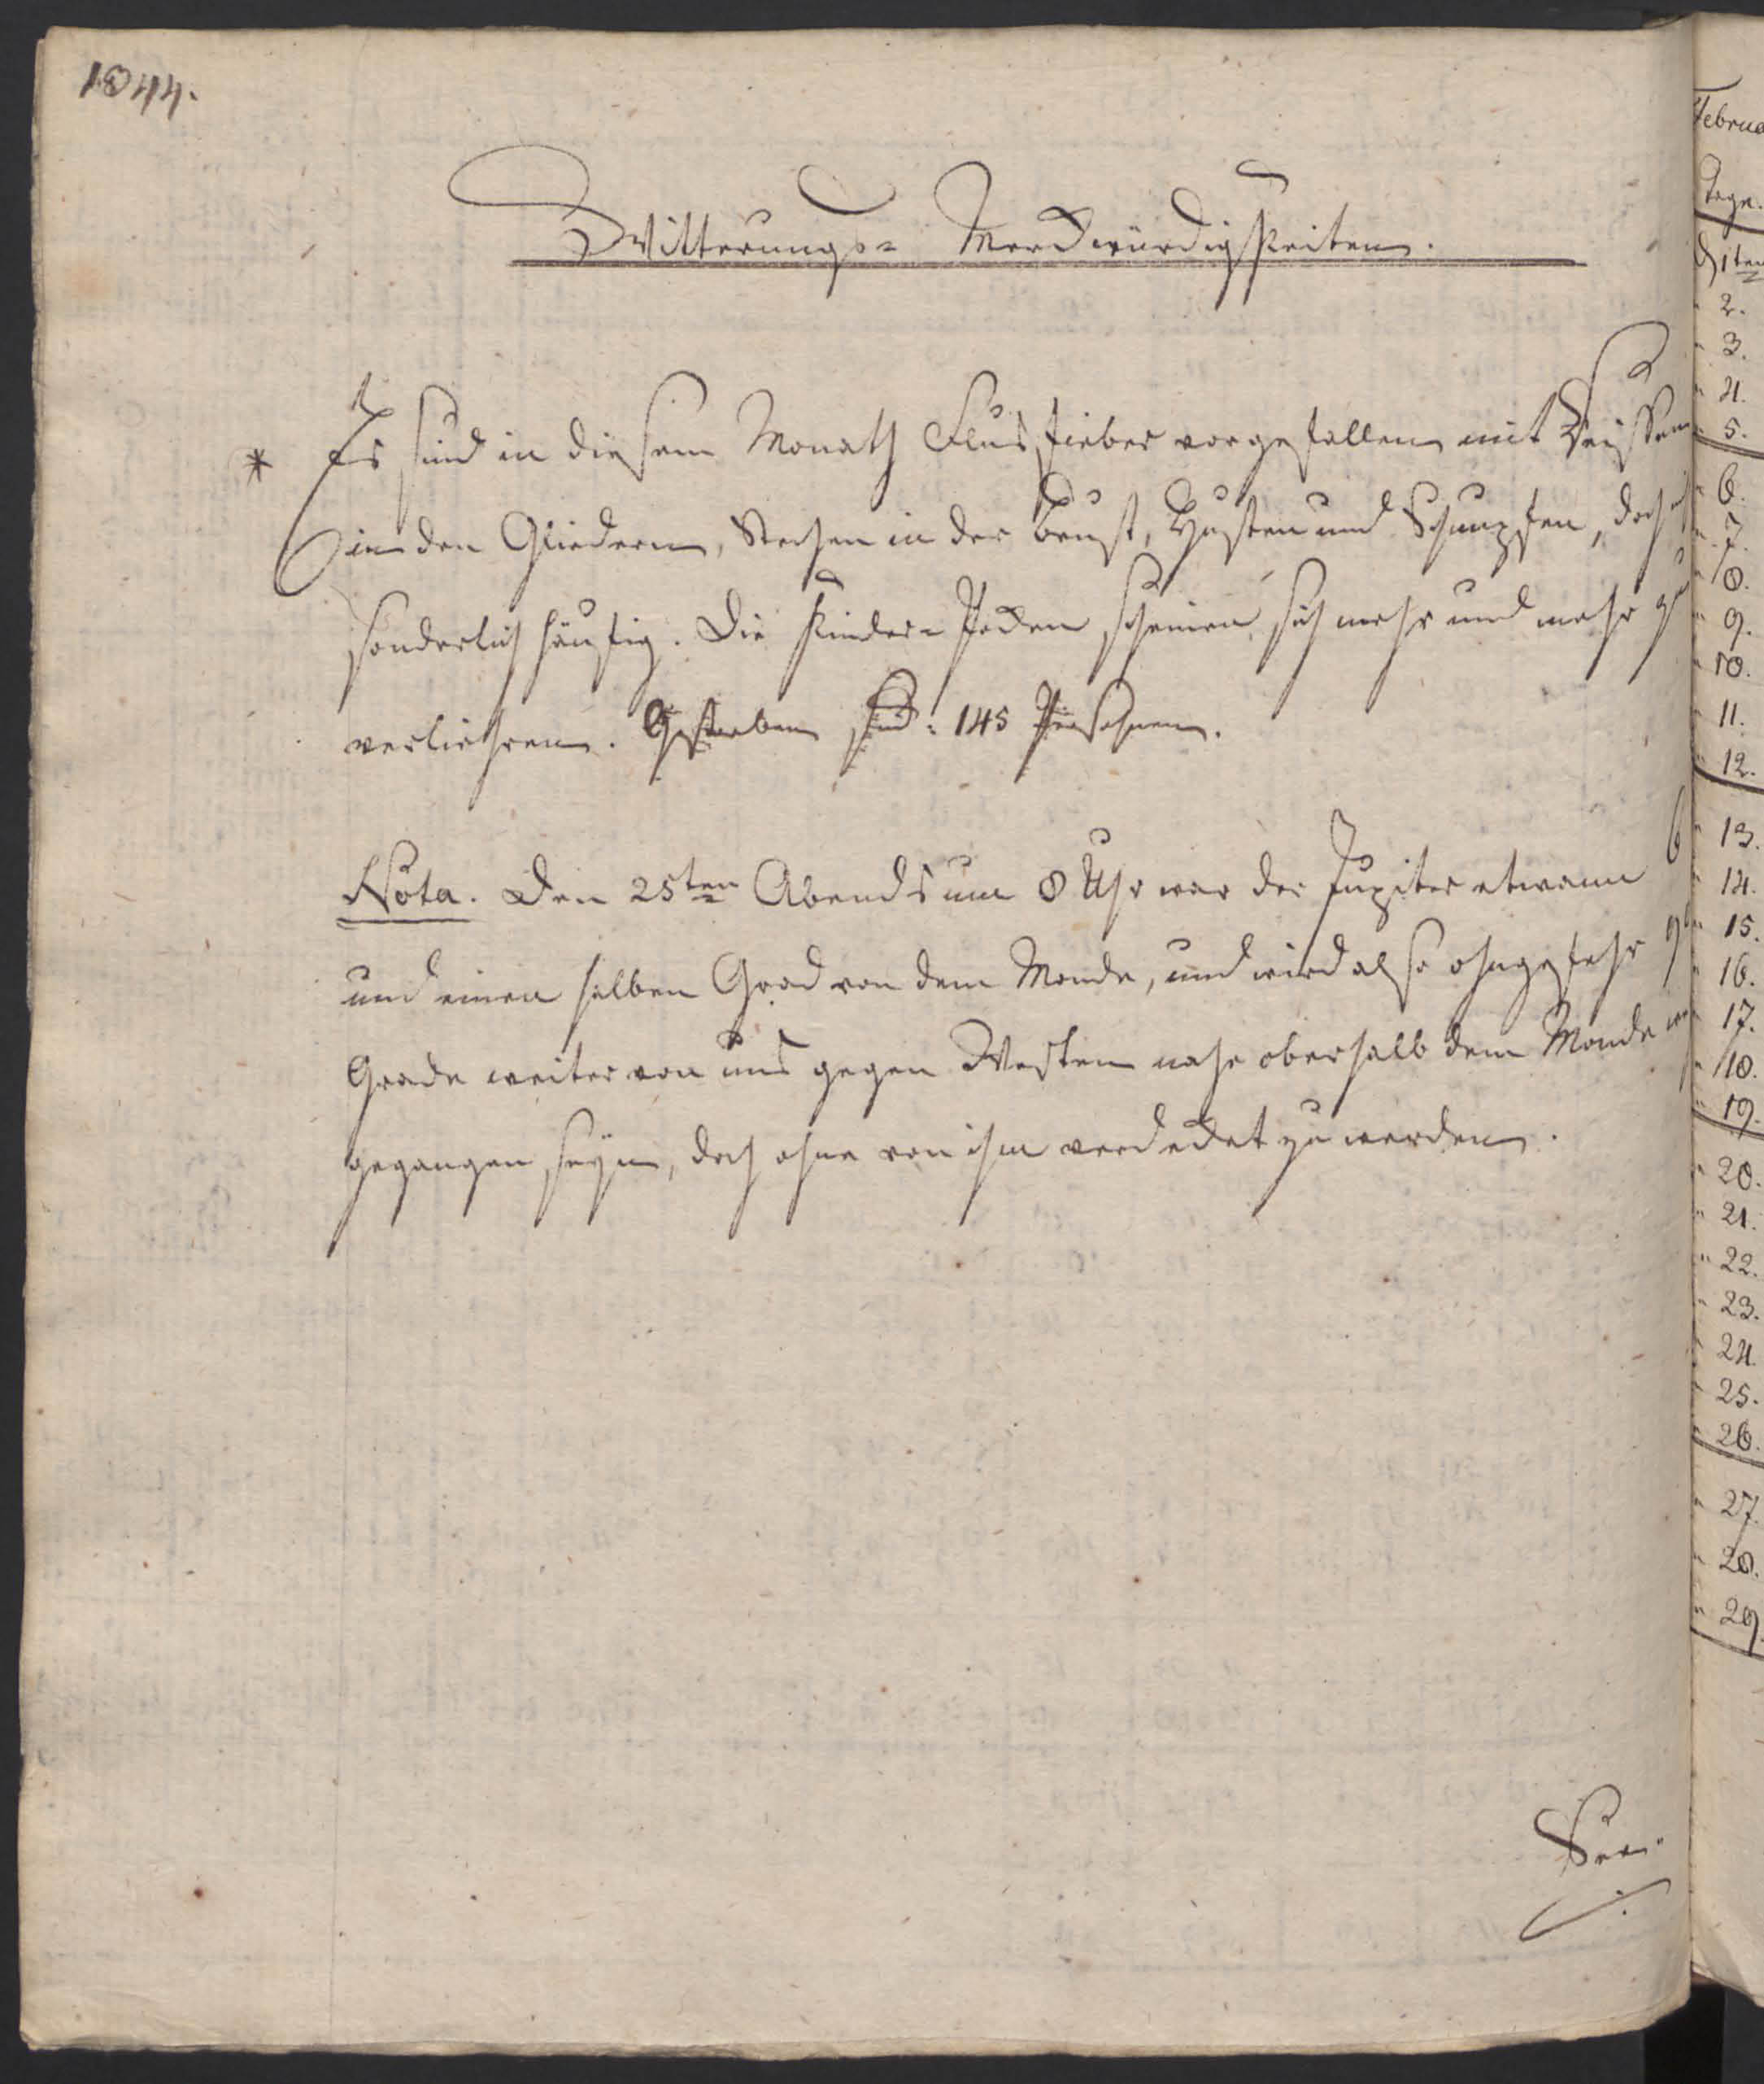 1844.
Witterungs- Merckwürdigkeiten.
* Es sind in diesem Monath Flus Fieber vorgefallen mit Reissen
in den Gliedern, Stechen in der Brust, Husten und Schnupfen, doch
sonderlich häufig. Die Kinder-Pocken scheinen sich mehr und mehr zu
verliehren. Gestorben sind: 145 Persohnen.
Nota. Den 25ten Abends um 8 Uhr war der Jupiter etwann 6
und einen halben Grad von dem Monde, und wird also ohngefehr
Grade weiter von uns gegen Westen nahe oberhalb dem Monde
gegangen seyn, doch ohne von ihm verdecket zu werden.
Februa
Tage.
D 1ten
" 2.
" 3.
" 4.
" 5.
" 6.
" 7.
" 8.
" 9.
" 10.
" 11.
" 12.
" 13.
" 14.
" 15.
" 16.
" 17.
" 18.
" 19.
" 20.
" 21.
" 22.
" 23.
" 24.
" 25.
" 26.
" 27.
" 28.
" 29.